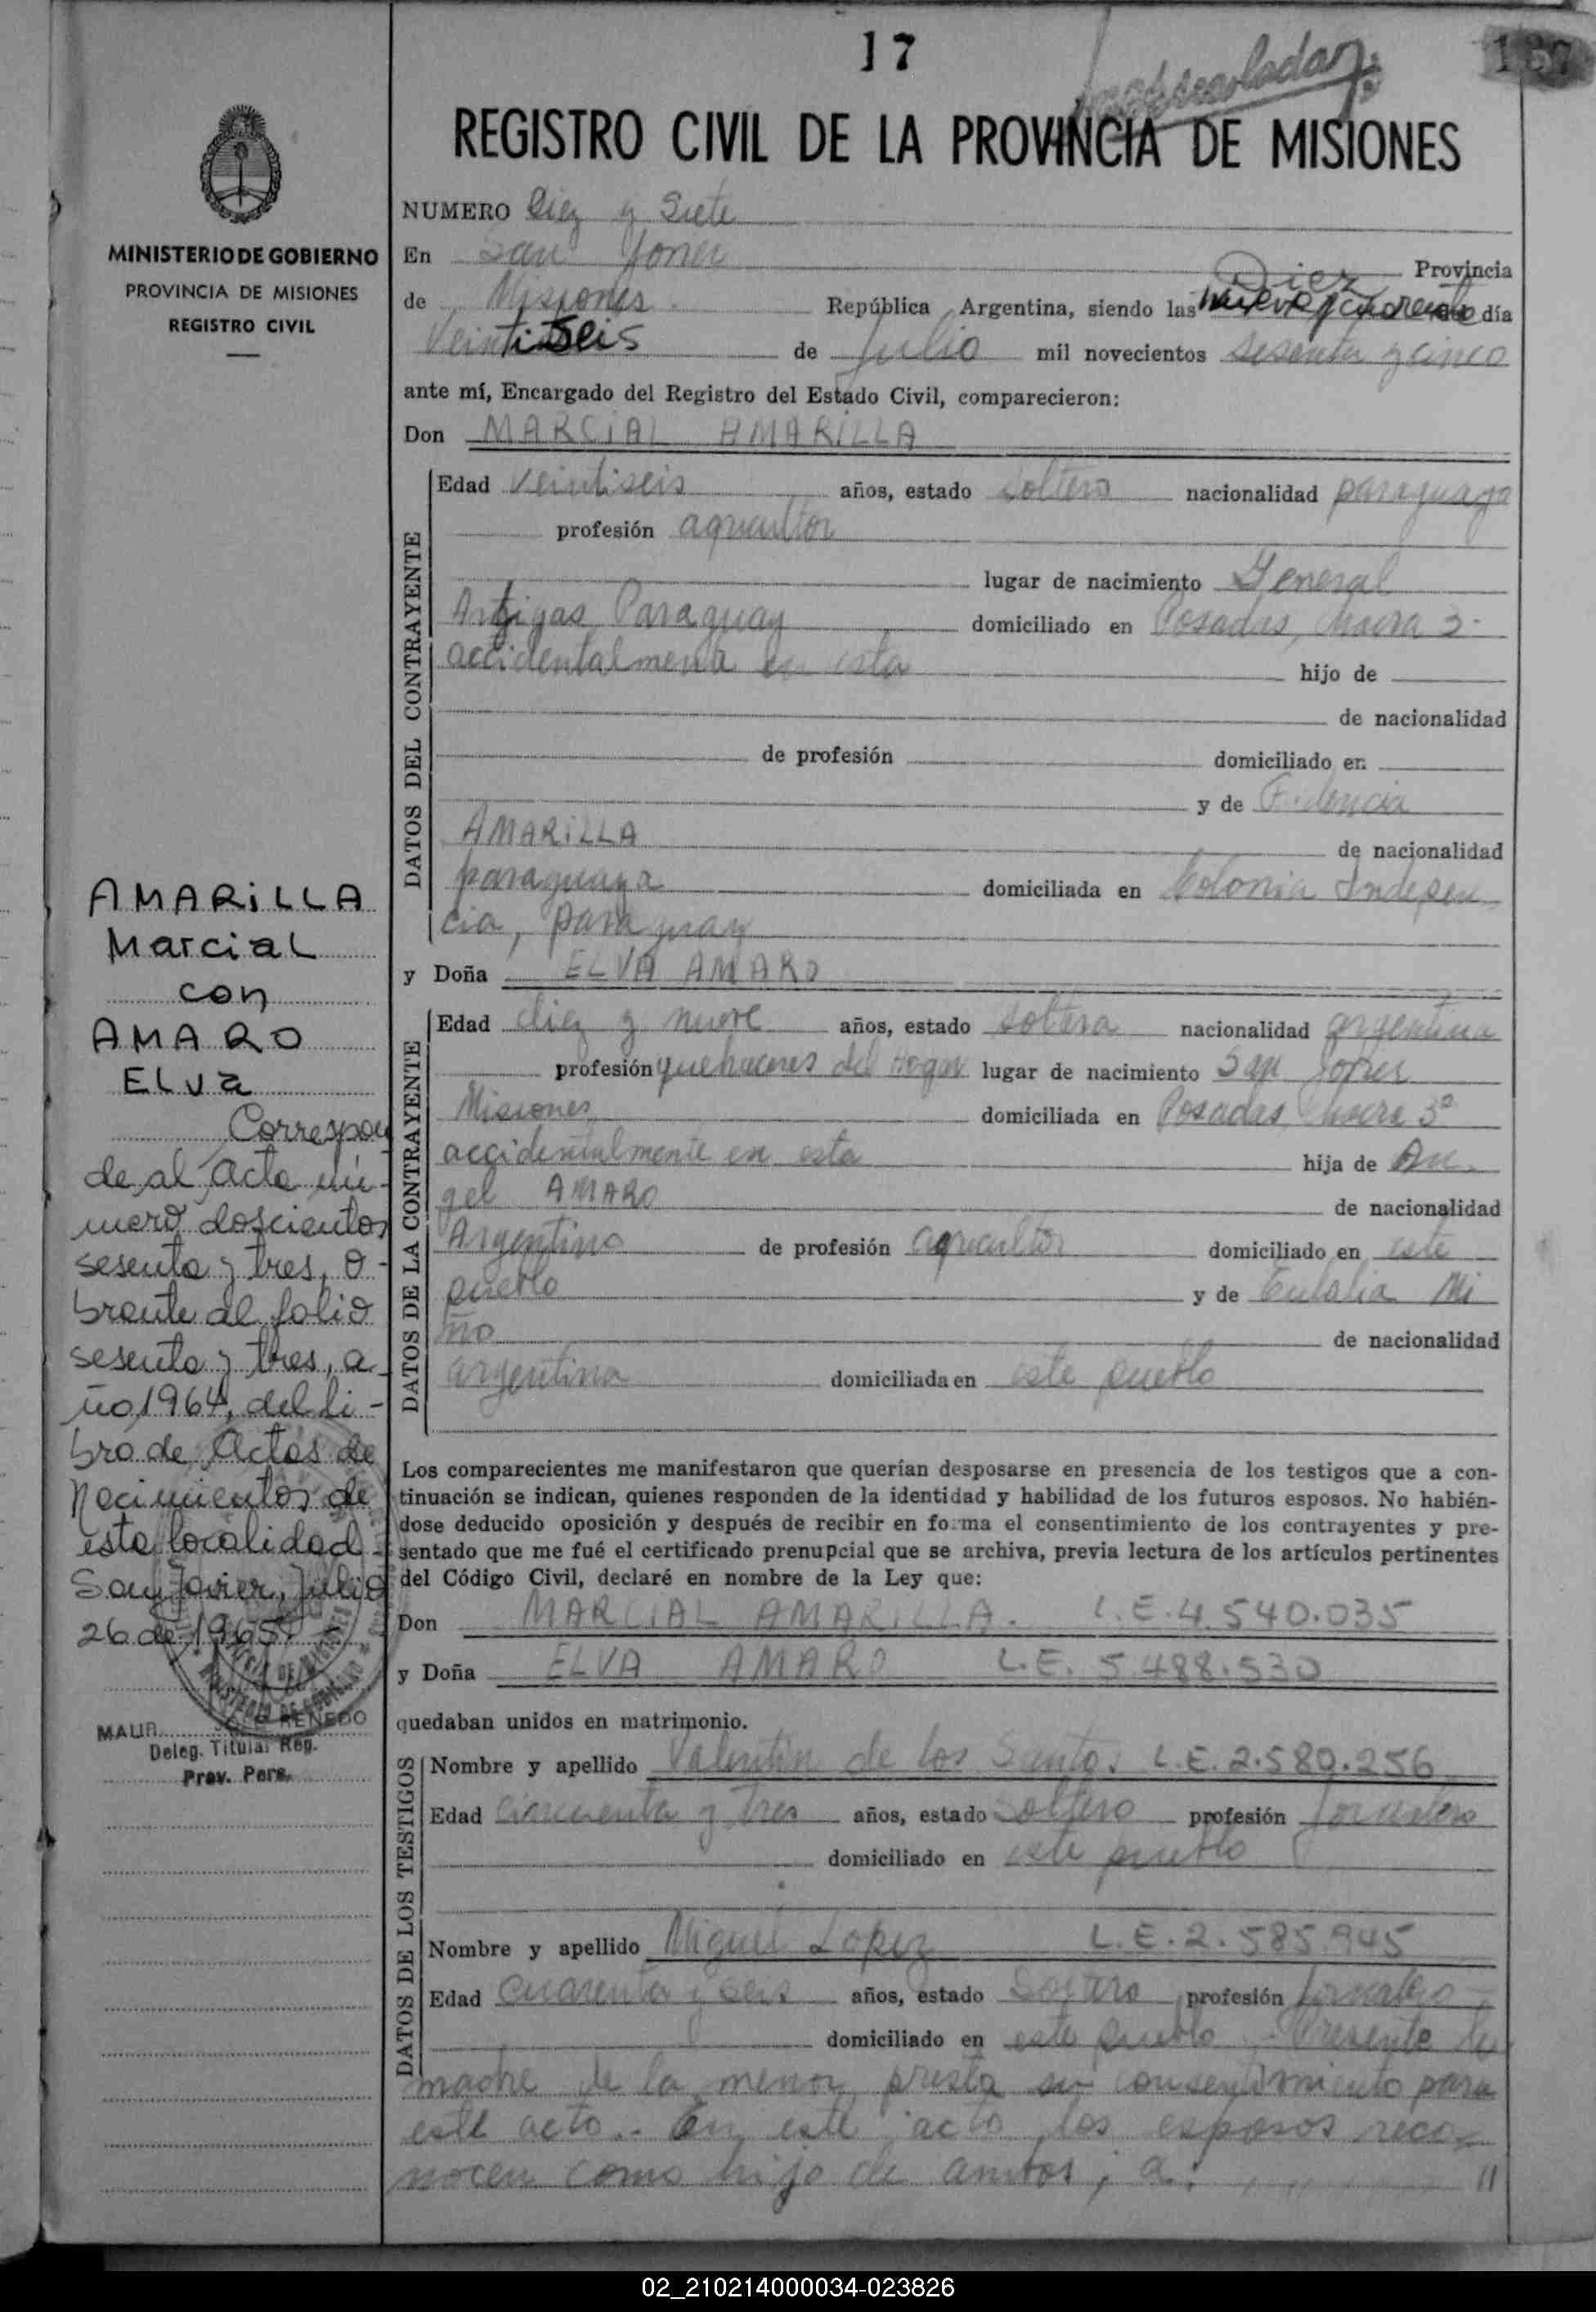 17
REGISTRO CIVIL DE LA PROVINCIA DE MISIONES
MINISTERIO DE GOBIERNO
PROVINCIA DE MISIONES
REGISTRO CIVIL
NUMERO Diez y Siete
En San Javier
Diez Provincia
de Misiones República Argentina, siendo las día
Veintiseis de Julio mil novecientos sesenta y cinco
ante mí, Encargado del Registro del Estado Civil, comparecieron:
Don MARCIAL AMARILLA
DATOS DEL CONTRAYENTE
Edad veintiseis años, estado soltero nacionalidad paraguaya
profesión agricultor
lugar de nacimiento General
Artigas Paraguay domiciliado en Posadas, Chacra 3
accidentalmente en esta hijo de
de nacionalidad
de profesión domiciliado en
y de Fidencia
AMARiLLA de nacionalidad
paraguaya domiciliada en Colonia Indepen
cia, Paraguay
y Doña ELVA AMARO
DATOS DE LA CONTRAYENTE
Edad diez y nueve años, estado soltera nacionalidad argentina
profesión quehaceres del Hogar lugar de nacimiento San Javier
Misiones domiciliada en Posadas Chacra 3ª
accidentalmente en esta hija de An
gel AMARO de nacionalidad
Argentino de profesión agricultor domiciliado en este
pueblo y de Eulalia Mi
ño de nacionalidad
argentina domiciliada en este pueblo
Los comparecientes me manifestaron que querían desposarse en presencia de los testigos que a con-
tinuación se indican, quienes responden de la identidad y habilidad de los futuros esposos. No habién-
dose deducido oposición y después de recibir en forma el consentimiento de los contrayentes y pre-
sentado que me fué el certificado prenupcial que se archiva, previa lectura de los artículos pertinentes
del Código Civil, declaré en nombre de la Ley que:
Don MARCIAL AMARILLA. L.E. 4.540.035
y Doña ELVA AMARO L.E. 5.488.530
quedaban unidos en matrimonio.
DATOS DE LOS TESTIGOS
Nombre y apellido Valentin de los Santos L.E. 2.580.256
Edad cincuenta y tres años, estado soltero profesión Jornalero
domiciliado en este pueblo
Nombre y apellido Miguel Lopez L.E. 2.585.945
Edad cuarenta y seis años, estado Soltero profesión jornalero
domiciliado en este pueblo - Presente la
madre de la menor presta su consentimiento para
este acto.- En este acto los esposos reco-
nocen como hijo de ambos, a: //
AMARiLLA
Marcial
con
AMARO
ELva
Correspon
de al acta nú-
mero doscientos
sesenta y tres, o-
brante al folio
sesenta y tres, a-
ño 1964, del li-
bro de Actas de
Nacimientos de
esta localidad.-
San Javier, Julio
26 de 1965.-
RENEDO
Deleg. Titular Reg.
Prov. Pers.
02_210214000034-023826